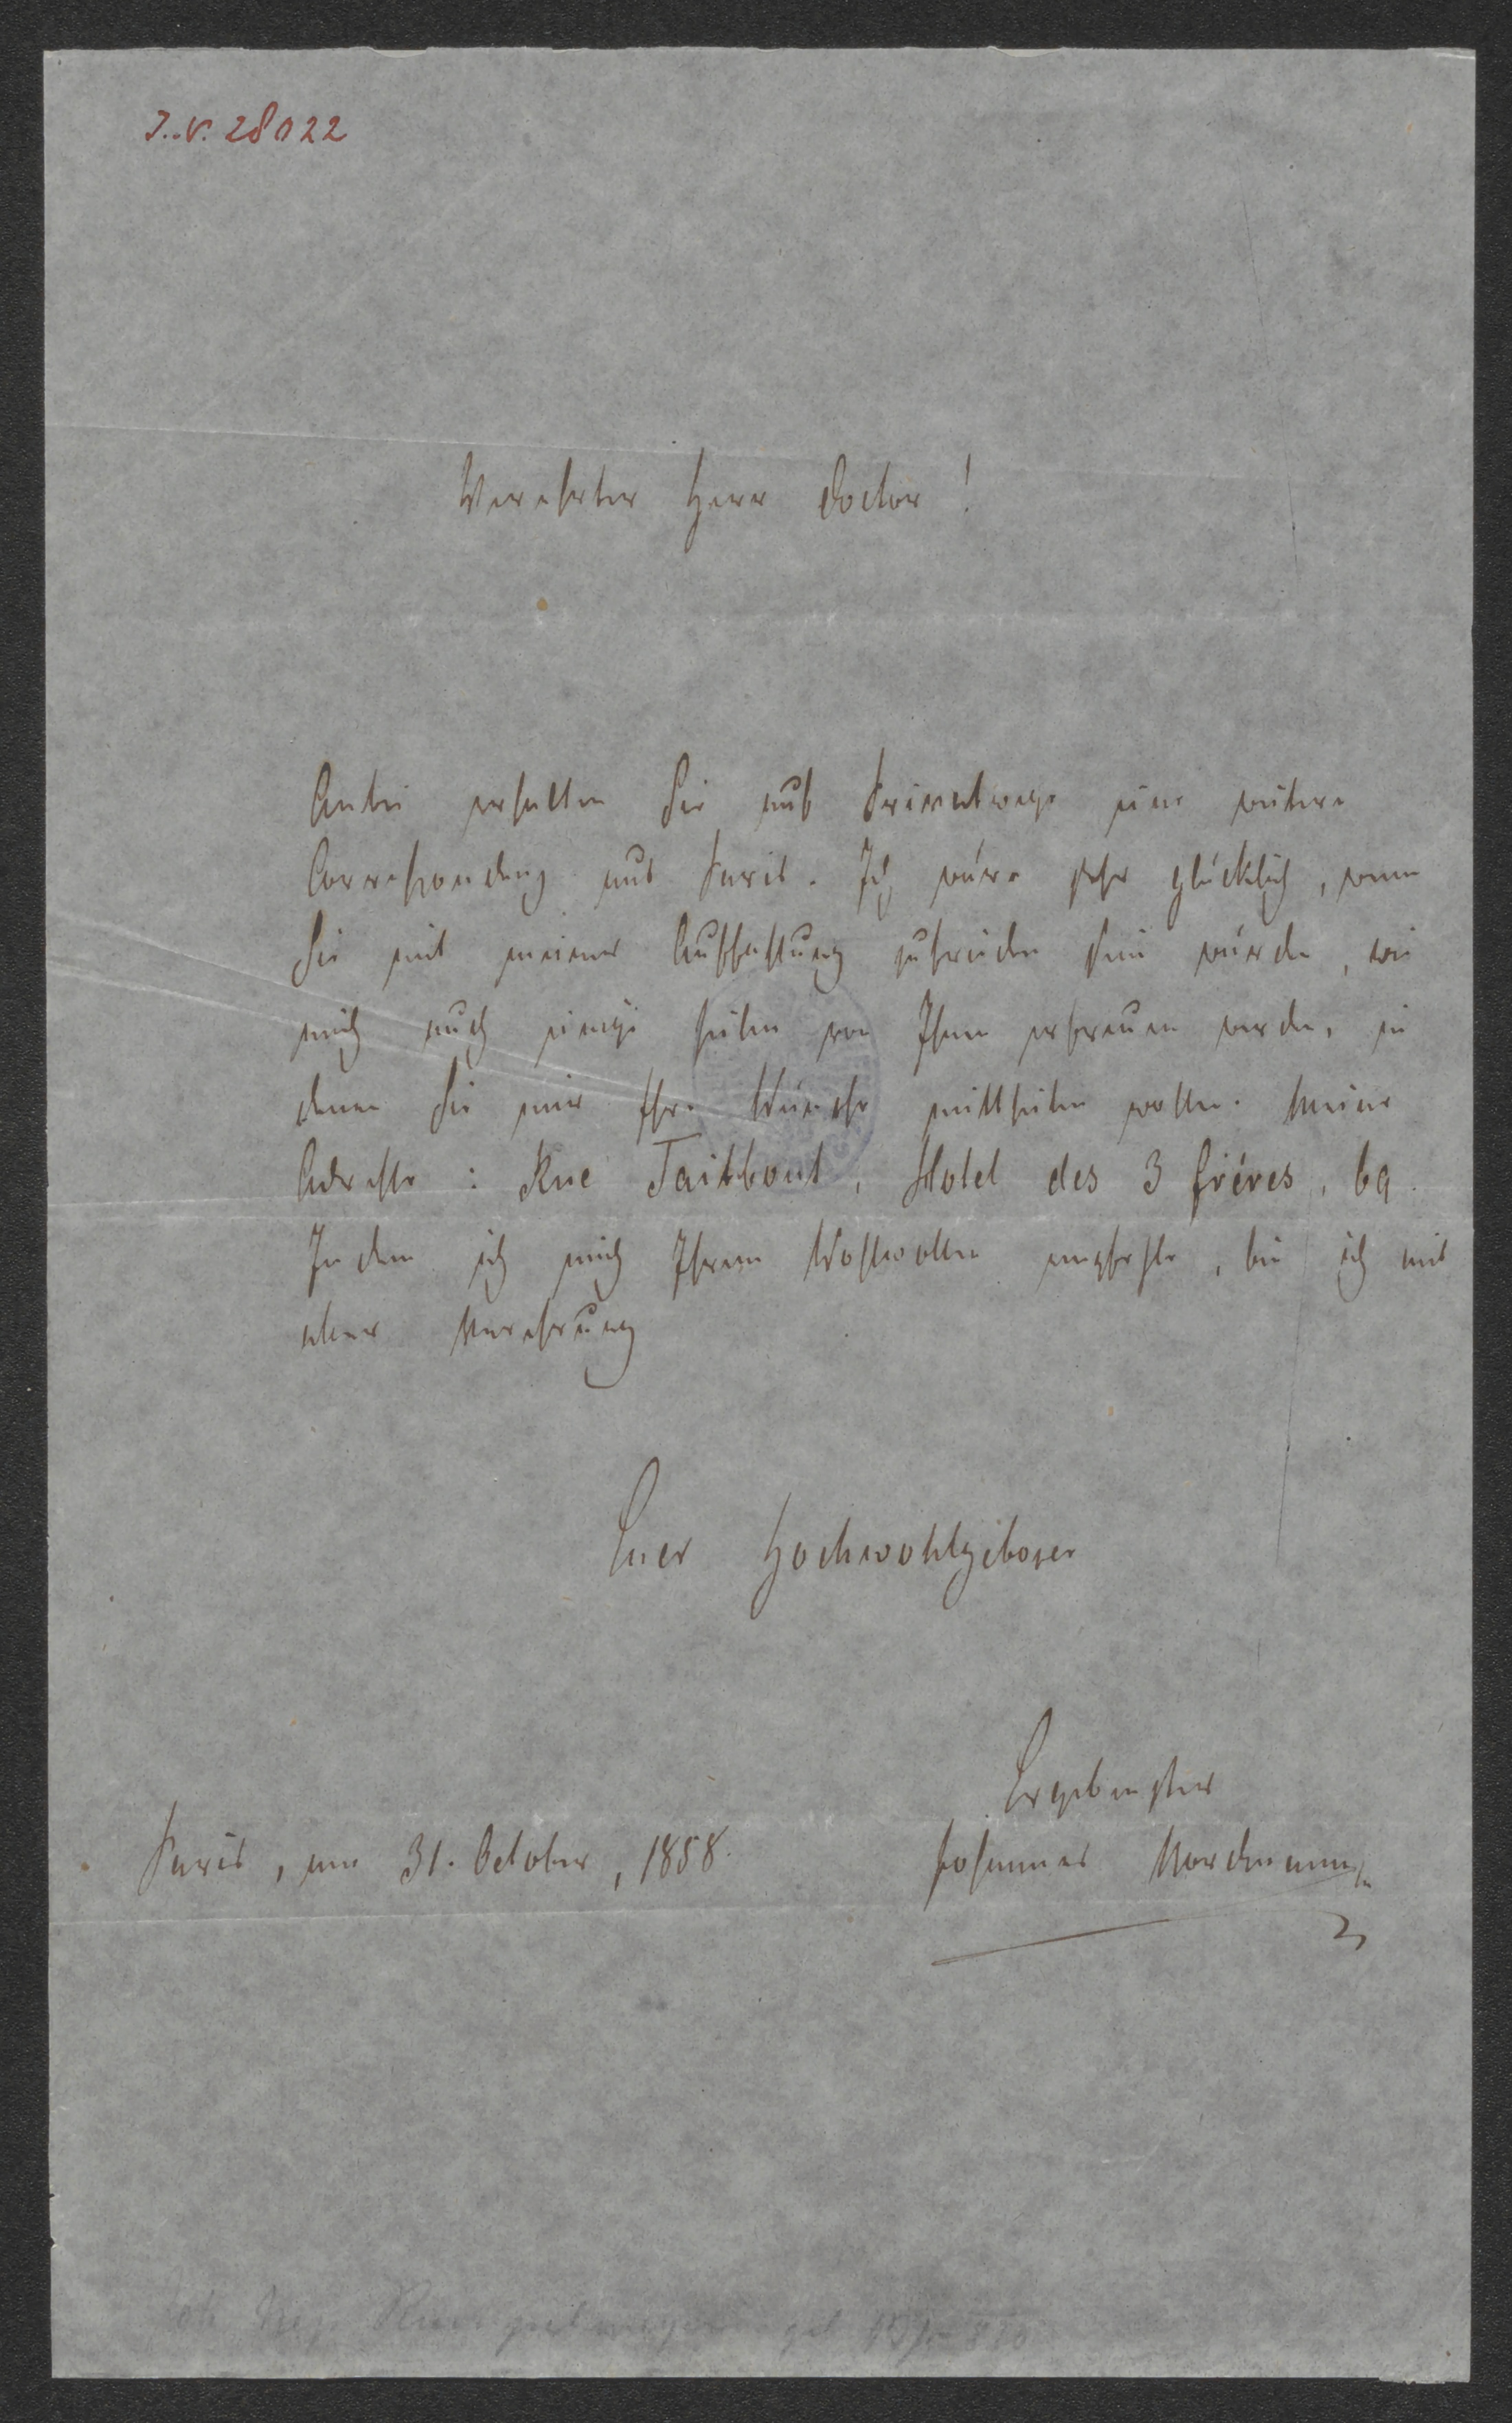 I. N. 28022
Verehrter Herr Doctor!
Anbei erhalten Sie auf Privatwege eine weitere
Correspondenz aus Paris. Ich wäre sehr glücklich, wenn
Sie mit meiner Auffassung zufrieden sein würden, wie
mich auch einige Zeilen von Ihnen erfreuen werden, in
denen Sie mir Ihre Wünsche mittheilen wollen. Meine
Adresse: Rue Taitbout, Hotel des 3 frères, 69.
Indem ich mich Ihrem Wohlwollen empfehle, bin ich mit
aller Verehrung
Euer Hochwohlgeboren
Ergebenster
Paris, am 31. October, 1858.
Johannes Nordmann
Joh. Nep. Rumpelmayer geb.